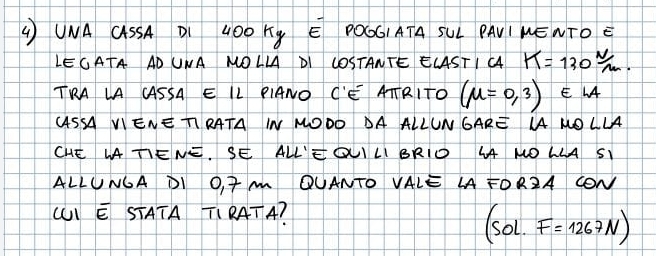 4) UNA CASSA DI 400 Kg È POGGIATA SUL PAVIMENTO E
LEGATA AD UNA MOLLA DI COSTANTE ELASTICA K = 130 N/m.
TRA LA CASSA E IL PIANO C'É ATTRITO (μ = 0,3) E LA
CASSA VIENE TIRATA IN MODO DA ALLUNGARE LA MOLLA
CHE LA TIENE. SE ALL'EQUILIBRIO LA MOLLA SI
ALLUNGA DI 0,7 m QUANTO VALE LA FORZA CON
CUI È STATA TIRATA?
(SOL. F = 1267 N)